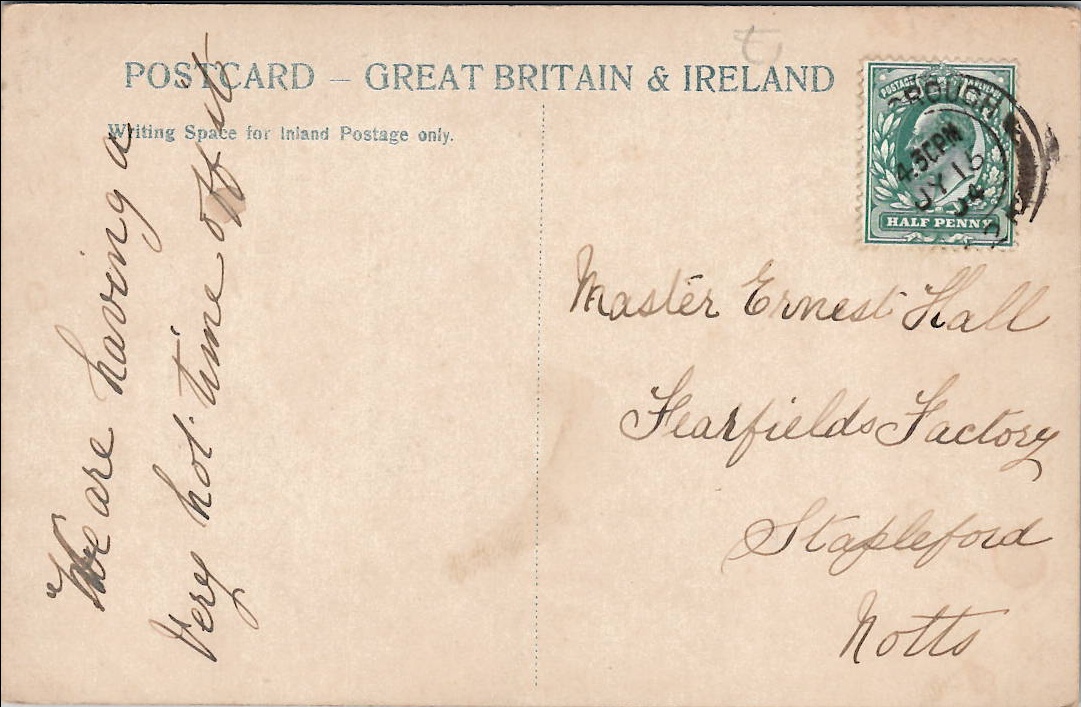 POSTCARD – GREAT BRITAIN & IRELAND
Writing Space for Inland Postage only.
We are having a
very hot time off it
POSTAGE
HALF PENNY
BROUGH
4.30PM
JY 16
04
Master Ernest Hall
Fearfields Factory
Stapleford
Notts